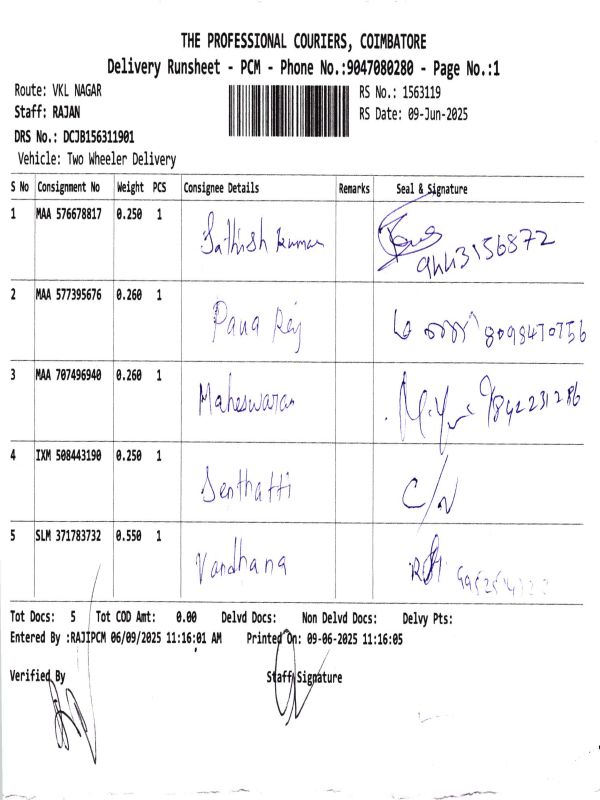 THE PROFESSIONAL COURIERS, COIMBATORE
Delivery Runsheet - PCM - Phone No.:9047080280 - Page No.:1
Route: VKL NAGAR RS No.: 1563119
Staff: RAJAN RS Date: 09-Jun-2025
DRS No.: DCJB156311901
Vehicle: Two Wheeler Delivery
S No Consignment No Weight PCS Consignee Details Remarks Seal & Signature
1 MAA 576678817 0.250 1 Sathish kumar 9443156872
2 MAA 577395676 0.260 1 Paua Raj 8098470756
3 MAA 707496940 0.260 1 Maheswaran 9842231286
4 IXM 508443190 0.250 1 Senthatti C/N
5 SLM 371783732 0.550 1 Vandhana
Tot Docs: 5 Tot COD Amt: 0.00 Delvd Docs: Non Delvd Docs: Delvy Pts:
Entered By :RAJIPCM 06/09/2025 11:16:01 AM Printed On: 09-06-2025 11:16:05
Verified By Staff Signature